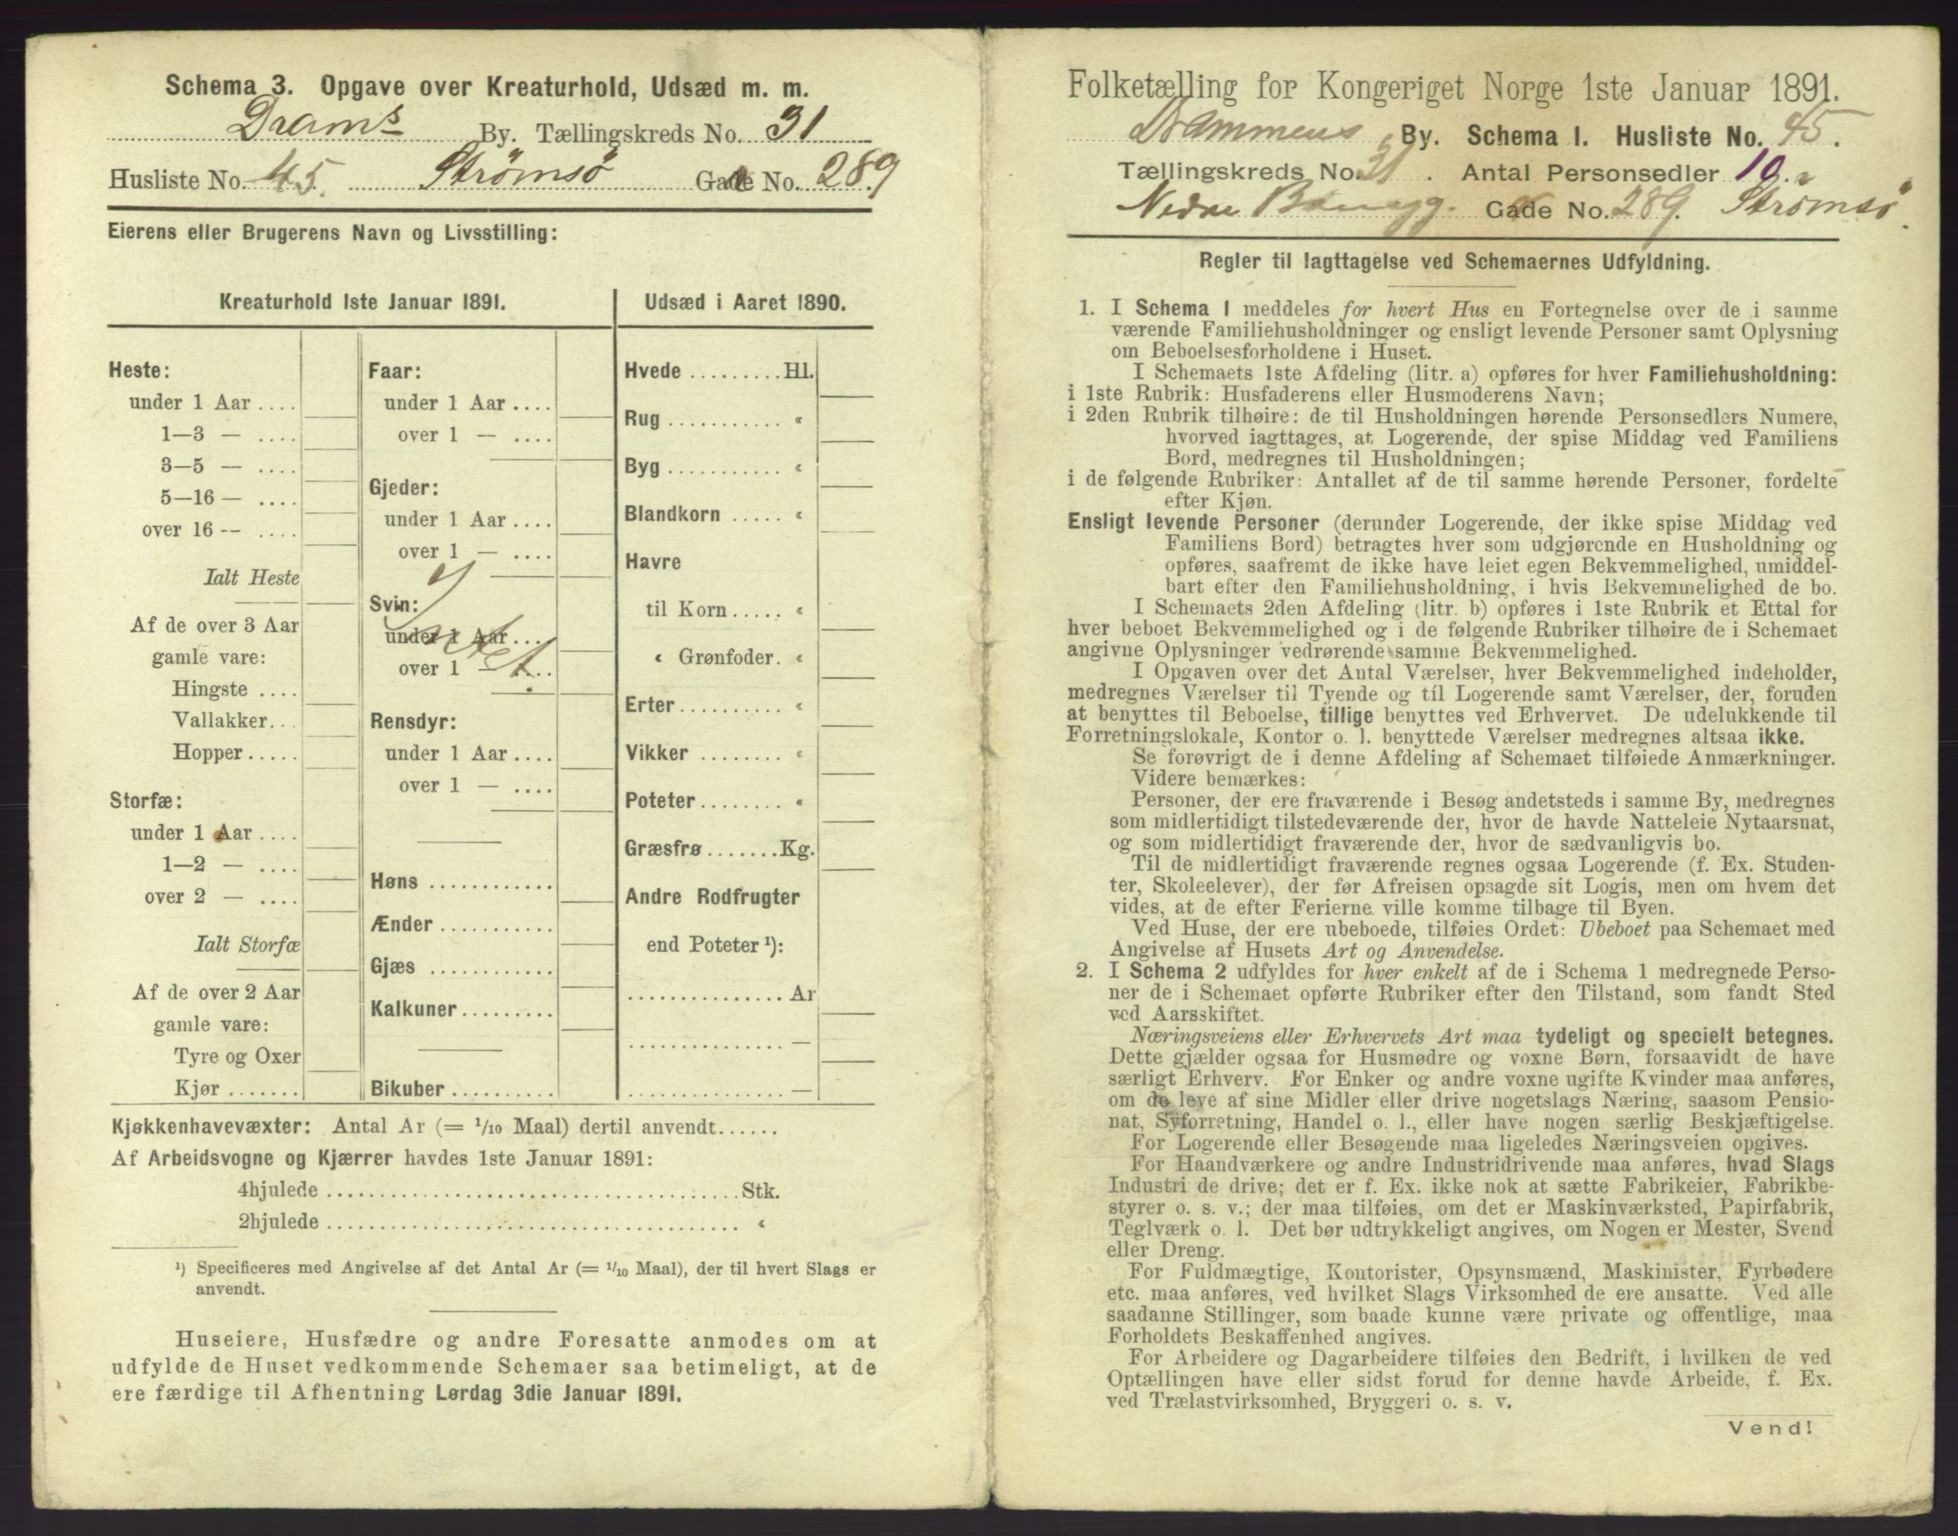 Schema 3. Opgave over Kreaturhold, Udsæd m. m.
Dram.s By. Tællingskreds No. 31
Husliste No. 45. Strømsø Gade No. 289
Eierens eller Brugerens Navn og Livsstilling:
Kreaturhold 1ste Januar 1891.
Heste:
under 1 Aar ....
1—3 — ....
3—5 — ....
5—16 — ....
over 16 — ....
Ialt Heste
Af de over 3 Aar
gamle vare:
Hingste ....
Vallakker...
Hopper.....
Storfæ:
under 1 Aar ....
1—2 — ....
over 2 — ....
Ialt Storfæ
Af de over 2 Aar
gamle vare:
Tyre og Oxer
Kjør .......
Faar:
under 1 Aar ....
over 1 — ....
Gjeder:
under 1 Aar ....
over 1 — ....
Svin:
under 1 Aar ....
over 1 — ....
Intet.
Rensdyr:
under 1 Aar ....
over 1 — ....
Høns ............
Ænder ...........
Gjæs ............
Kalkuner.........
Bikuber ..........
Udsæd i Aaret 1890.
Hvede .........Hl.
Rug ........... «
Byg ........... «
Blandkorn ..... «
Havre
til Korn ..... «
« Grønfoder. «
Erter......... «
Vikker ........ «
Poteter........ «
Græsfrø .......Kg.
Andre Rodfrugter
end Poteter ¹):
...............Ar
............... —
............... —
Kjøkkenhavevæxter: Antal Ar (= 1/10 Maal) dertil anvendt......
Af Arbeidsvogne og Kjærrer havdes 1ste Januar 1891:
4hjulede ........................................Stk.
2hjulede ........................................ «
¹) Specificeres med Angivelse af det Antal Ar (= 1/10 Maal), der til hvert Slags er
anvendt.
Huseiere, Husfædre og andre Foresatte anmodes om at
udfylde de Huset vedkommende Schemaer saa betimeligt, at de
ere færdige til Afhentning Lørdag 3die Januar 1891.
Folketælling for Kongeriget Norge 1ste Januar 1891.
Drammens By. Schema 1. Husliste No. 45.
Tællingskreds No. 31. Antal Personsedler 10.
Nedre Gade No. 289. Strømsø.
Regler til Iagttagelse ved Schemaernes Udfyldning.
1. I Schema 1 meddeles for hvert Hus en Fortegnelse over de i samme
værende Familiehusholdninger og ensligt levende Personer samt Oplysning
om Beboelsesforholdene i Huset.
I Schemaets 1ste Afdeling (litr. a) opføres for hver Familiehusholdning:
i 1ste Rubrik: Husfaderens eller Husmoderens Navn;
i 2den Rubrik tilhøire: de til Husholdningen hørende Personsedlers Numere,
hvorved iagttages, at Logerende, der spise Middag ved Familiens
Bord, medregnes til Husholdningen;
i de følgende Rubriker: Antallet af de til samme hørende Personer, fordelte
efter Kjøn.
Ensligt levende Personer (derunder Logerende, der ikke spise Middag ved
Familiens Bord) betragtes hver som udgjørende en Husholdning og
opføres, saafremt de ikke have leiet egen Bekvemmelighed, umiddel-
bart efter den Familiehusholdning, i hvis Bekvemmelighed de bo.
I Schemaets 2den Afdeling (litr. b) opføres i 1ste Rubrik et Ettal for
hver beboet Bekvemmelighed og i de følgende Rubriker tilhøire de i Schemaet
angivne Oplysninger vedrørende samme Bekvemmelighed.
I Opgaven over det Antal Værelser, hver Bekvemmelighed indeholder,
medregnes Værelser til Tyende og til Logerende samt Værelser, der, foruden
at benyttes til Beboelse, tillige benyttes ved Erhvervet. De udelukkende til
Forretningslokale, Kontor o. l. benyttede Værelser medregnes altsaa ikke.
Se forøvrigt de i denne Afdeling af Schemaet tilføiede Anmærkninger.
Videre bemærkes:
Personer, der ere fraværende i Besøg andetsteds i samme By, medregnes
som midlertidigt tilstedeværende der, hvor de havde Natteleie Nytaarsnat,
og som midlertidigt fraværende der, hvor de sædvanligvis bo.
Til de midlertidigt fraværende regnes ogsaa Logerende (f. Ex. Studen-
ter, Skoleelever), der før Afreisen opsagde sit Logis, men om hvem det
vides, at de efter Ferierne ville komme tilbage til Byen.
Ved Huse, der ere ubeboede, tilføies Ordet: Ubeboet paa Schemaet med
Angivelse af Husets Art og Anvendelse.
2. I Schema 2 udfyldes for hver enkelt af de i Schema 1 medregnede Perso-
ner de i Schemaet opførte Rubriker efter den Tilstand, som fandt Sted
ved Aarsskiftet.
Næringsveiens eller Erhvervets Art maa tydeligt og specielt betegnes.
Dette gjælder ogsaa for Husmødre og voxne Børn, forsaavidt de have
særligt Erhverv. For Enker og andre voxne ugifte Kvinder maa anføres,
om de leve af sine Midler eller drive nogetslags Næring, saasom Pensio-
nat, Syforretning, Handel o. l., eller have nogen særlig Beskjæftigelse.
For Logerende eller Besøgende maa ligeledes Næringsveien opgives.
For Haandværkere og andre Industridrivende maa anføres, hvad Slags
Industri de drive; det er f. Ex. ikke nok at sætte Fabrikeier, Fabrikbe-
styrer o. s. v.; der maa tilføies, om det er Maskinværksted, Papirfabrik,
Teglværk o. l. Det bør udtrykkeligt angives, om Nogen er Mester, Svend
eller Dreng.
For Fuldmægtige, Kontorister, Opsynsmænd, Maskinister, Fyrbødere
etc. maa anføres, ved hvilket Slags Virksomhed de ere ansatte. Ved alle
saadanne Stillinger, som baade kunne være private og offentlige, maa
Forholdets Beskaffenhed angives.
For Arbeidere og Dagarbeidere tilføies den Bedrift, i hvilken de ved
Optællingen have eller sidst forud for denne havde Arbeide, f. Ex.
ved Trælastvirksomhed, Bryggeri o. s. v.
Vend!